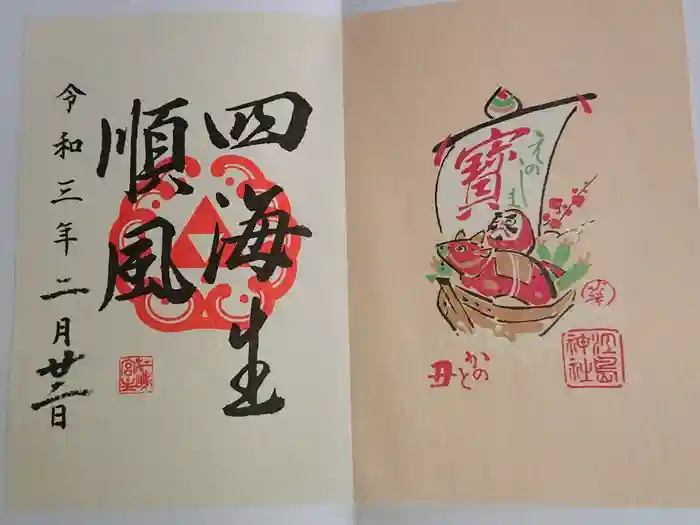 四海生
順風
令和三年二月廿二日
寳
えのしま
かのと
丑
江島
神社